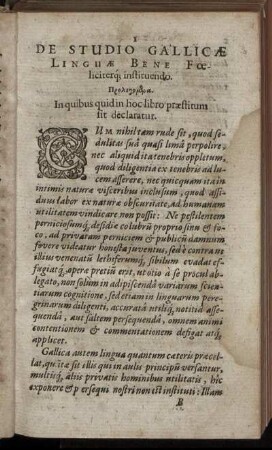 1
DE STUDIO GALLICÆ
LINGUÆ BENE FŒ-
liciterq́; instituendo.
Προλεγόμενα.
In quibus quid in hoc libro præstitum
sit declaratur.
CUM nihil tam rude sit, quod se-
dulitas suâ quasi limâ perpolire,
nec aliquid ita tenebris oppletum,
quod diligentia ex tenebris ad lu-
cem asserere, nec quicquam ita in
intimis naturæ visceribus inclusum, quod assi-
duus labor ex naturæ obscuritate, ad humanam
utilitatem vindicare non possit: Ne pestilentem
perniciosumq́; desidiæ colubrũ proprio sinu & fo-
co, ad privatam perniciem & publicũ damnum
fovere videatur honesta juventus, sed è contra ne
illius venenatũ lethiferumq́; sibilum evadat ef-
fugiatq́;, opere pretiũ erit, ut otio à se procul able-
gato, non solùm in adipiscendâ variarum scien-
tiarum cognitione, sed etiam in linguarum pere-
grinarum diligenti, accuratâ utiliq́; notitiâ asse-
quendâ, aut saltem persequendâ, omnem animi
contentionem & commentationem defigat atq́;
applicet.
Gallica autem lingua quantum cæteris præcel-
lat, quàm sit illis qui in aulis principũ versantur,
multisq́; aliis privatis hominibus utilitatis, hîc
exponere & persequi nostri non est instituti: Illam
B